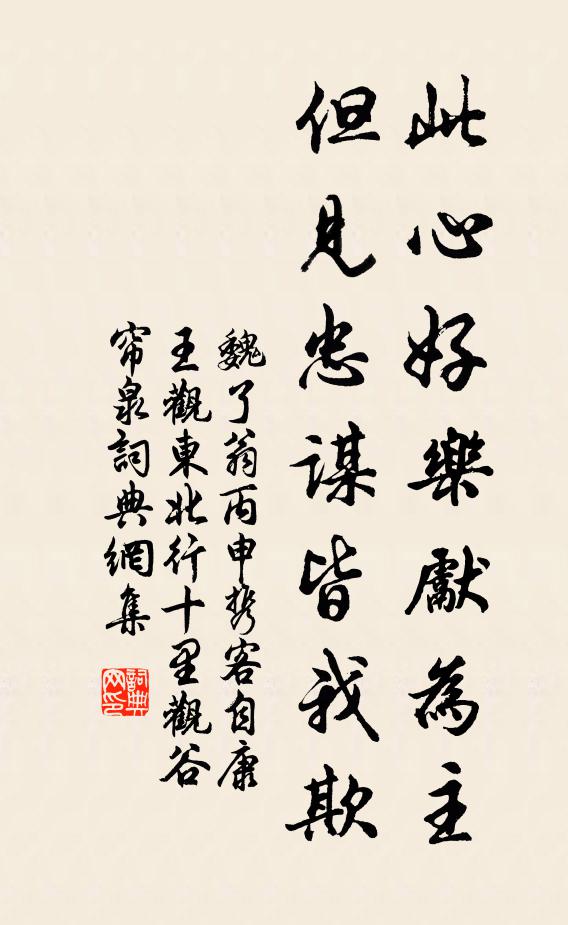 此心好樂獻為主
但見忠謀皆我欺
魏了翁丙申携客自康
王觀東北行十里觀谷
帘泉詞典網集
詞典
网印